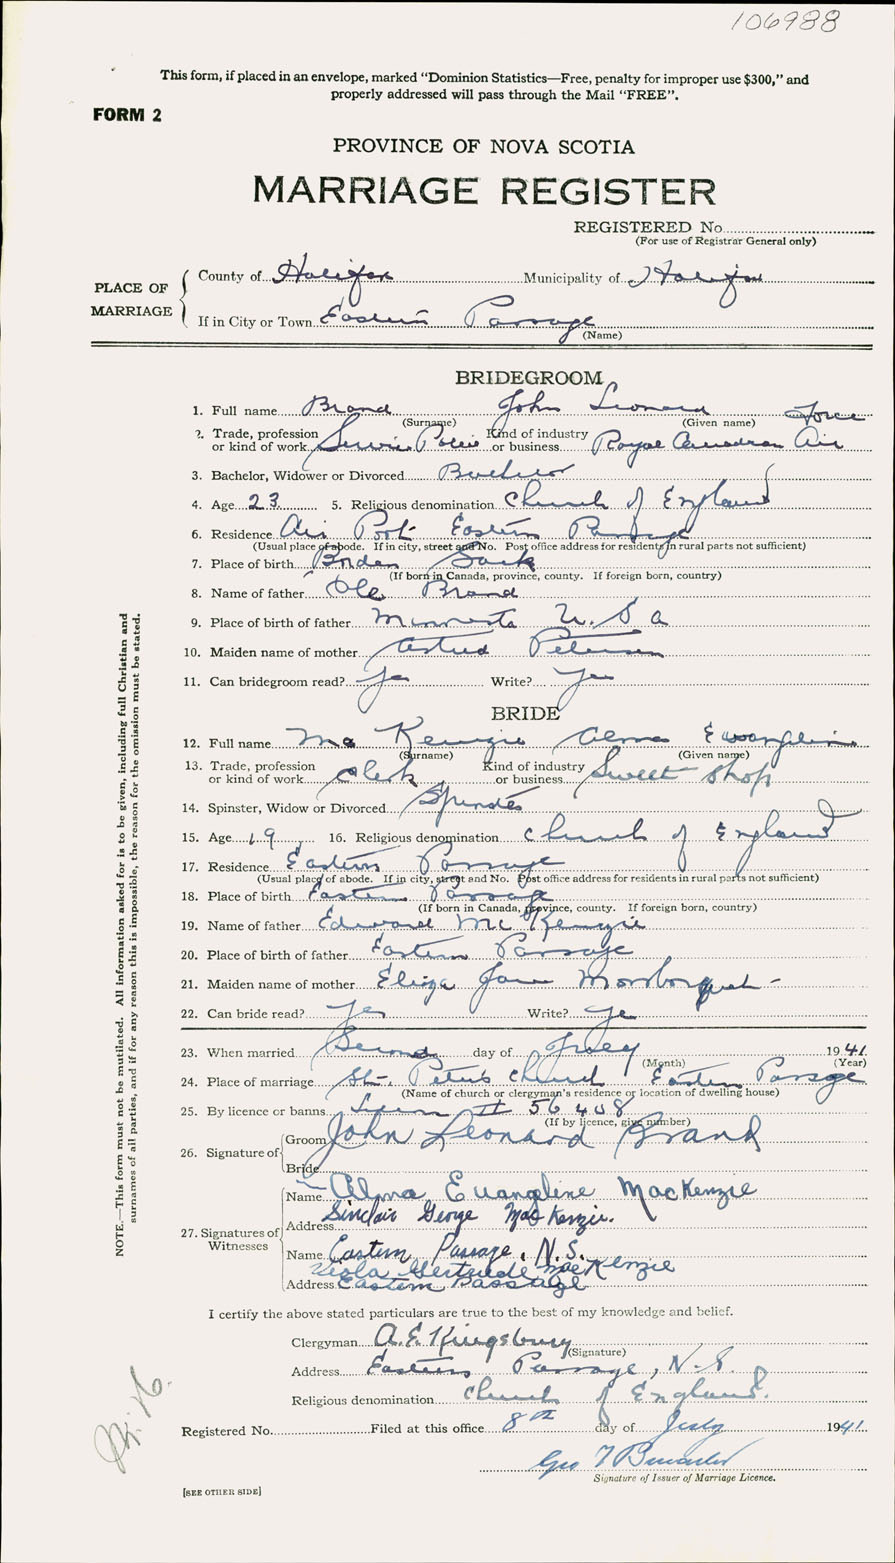 106988
This form, if placed in an envelope, marked "Dominion Statistics—Free, penalty for improper use $300," and
properly addressed will pass through the Mail "FREE".
FORM 2
PROVINCE OF NOVA SCOTIA
MARRIAGE REGISTER
REGISTERED No.
(For use of Registrar General only)
PLACE OF MARRIAGE
County of Halifax Municipality of Halifax
If in City or Town Eastern Passage
(Name)
BRIDEGROOM
1. Full name Brand John Leonard
(Surname) (Given name)
2. Trade, profession or kind of work Service Police Kind of industry or business Royal Canadian Air Force
3. Bachelor, Widower or Divorced Bachelor
4. Age 23 5. Religious denomination Church of England
6. Residence Air Port Eastern Passage
(Usual place of abode. If in city, street and No. Post office address for residents in rural parts not sufficient)
7. Place of birth Borden Sask
(If born in Canada, province, county. If foreign born, country)
8. Name of father Ole Brand
9. Place of birth of father Minnesota U.S.A
10. Maiden name of mother Astrid Peterson
11. Can bridegroom read? Yes Write? Yes
BRIDE
12. Full name Mac Kenzie Alma Evangeline
(Surname) (Given name)
13. Trade, profession or kind of work Clerk Kind of industry or business Sweet Shop
14. Spinster, Widow or Divorced Spinster
15. Age 19 16. Religious denomination Church of England
17. Residence Eastern Passage
(Usual place of abode. If in city, street and No. Post office address for residents in rural parts not sufficient)
18. Place of birth Eastern Passage
(If born in Canada, province, county. If foreign born, country)
19. Name of father Edward Mc Kenzie
20. Place of birth of father Eastern Passage
21. Maiden name of mother Eliza Jane
22. Can bride read? Yes Write? Yes
23. When married Second day of July 1941
(Month) (Year)
24. Place of marriage St. Peter's Church Eastern Passage
(Name of church or clergyman's residence or location of dwelling house)
25. By licence or banns # 56408
(If by licence, give number)
26. Signature of
Groom John Leonard Brand
Bride
Name Alma Evangeline MacKenzie
Sinclair George MacKenzie.
Address
27. Signatures of Witnesses
Name Eastern Passage, N.S.
Viola Gertrude MacKenzie
Address Eastern Passage
I certify the above stated particulars are true to the best of my knowledge and belief.
Clergyman A. E. Kingsbury
(Signature)
Address Eastern Passage, N.S.
Religious denomination Church of England.
Registered No. Filed at this office 8th day of July 1941
Geo
Signature of Issuer of Marriage Licence.
[SEE OTHER SIDE]
NOTE.—This form must not be mutilated. All information asked for is to be given, including full Christian and
surnames of all parties, and if for any reason this is impossible, the reason for the omission must be stated.